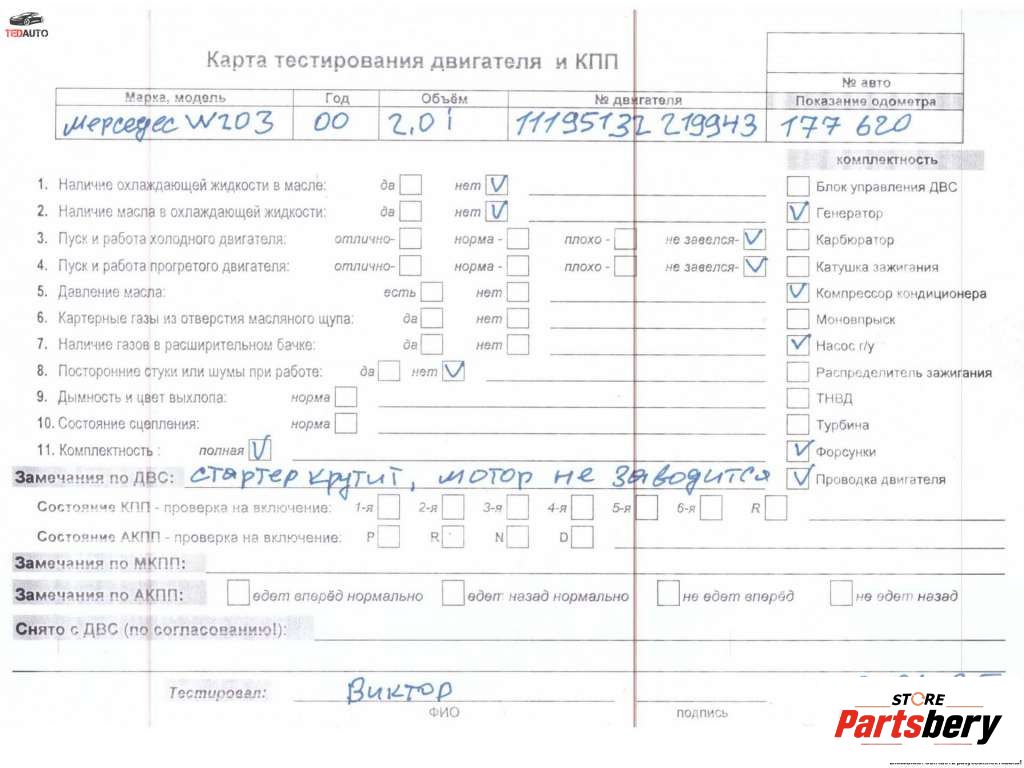 TEDAUTO
Карта тестирования двигателя и КПП
№ авто
Марка, модель Год Объём № двигателя Показание одометра
мерседес W203 00 2,0 i 11195132 219943 177 620
комплектность
1. Наличие охлаждающей жидкости в масле: да нет V Блок управления ДВС
2. Наличие масла в охлаждающей жидкости: да нет V V Генератор
3. Пуск и работа холодного двигателя: отлично- норма - плохо - не завелся- V Карбюратор
4. Пуск и работа прогретого двигателя: отлично- норма - плохо - не завелся- V Катушка зажигания
5. Давление масла: есть нет V Компрессор кондиционера
6. Картерные газы из отверстия масляного щупа: да нет Моновпрыск
7. Наличие газов в расширительном бачке: да нет V Насос г/у
8. Посторонние стуки или шумы при работе: да нет V Распределитель зажигания
9. Дымность и цвет выхлопа: норма ТНВД
10. Состояние сцепления: норма Турбина
11. Комплектность : полная V V Форсунки
Замечания по ДВС: стартер крутит, мотор не заводится V Проводка двигателя
Состояние КПП - проверка на включение: 1-я 2-я 3-я 4-я 5-я 6-я R
Состояние АКПП - проверка на включение: P R N D
Замечания по МКПП:
Замечания по АКПП: едет вперёд нормально едет назад нормально не едет вперёд не едет назад
Снято с ДВС (по согласованию!):
Тестировал: Виктор
ФИО подпись
STORE
Partsbery